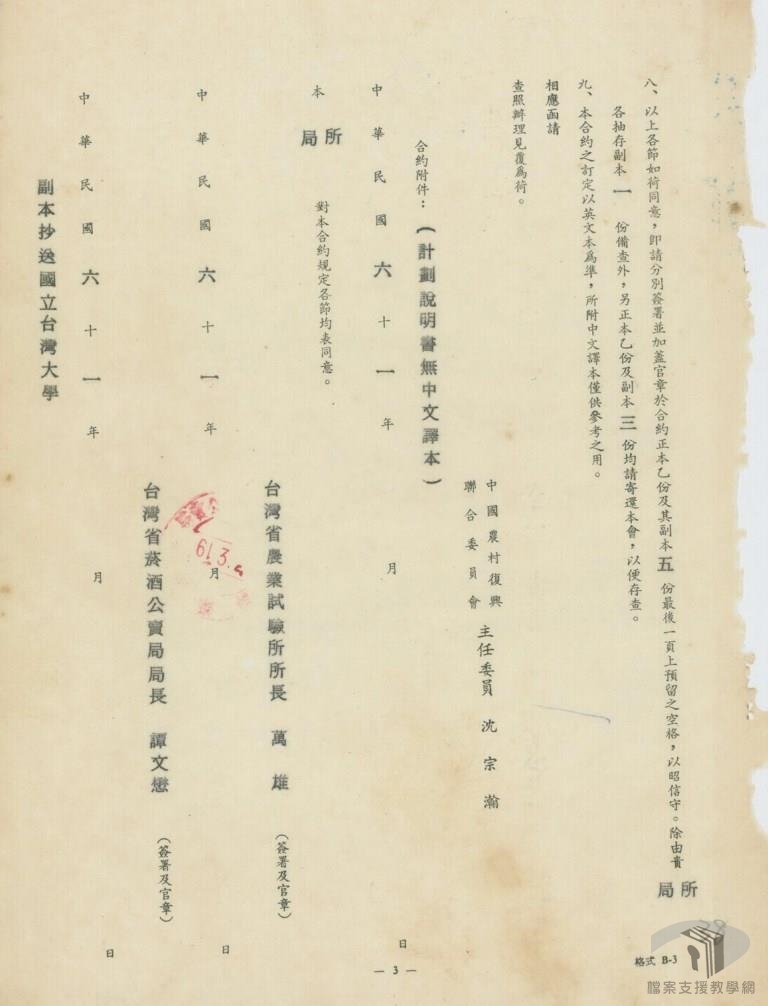 八、以上各節如荷同意，即請分別簽署並加蓋官章於合約正本乙份及其副本五份最後一頁上預留之空格，以昭信守。除由貴所局
各抽存副本一份備查外，另正本乙份及副本三份均請寄還本會，以便存查。
九、本合約之訂定以英文本為準，所附中文譯本僅供參考之用。
相應函請
查照辦理見覆為荷。
中國農村復興聯合委員會 主任委員 沈宗瀚
合約附件：（計劃說明書無中文譯本）
中華民國六十一年 月 日
本所局 對本合約規定各節均表同意。
台灣省農業試驗所所長 萬雄 （簽署及官章）
中華民國六十一年 月 日
61.3.
台灣省菸酒公賣局局長 譚文懋 （簽署及官章）
中華民國六十一年 月 日
副本抄送國立台灣大學
— 3 —
格式 B-3
檔案支援教學網